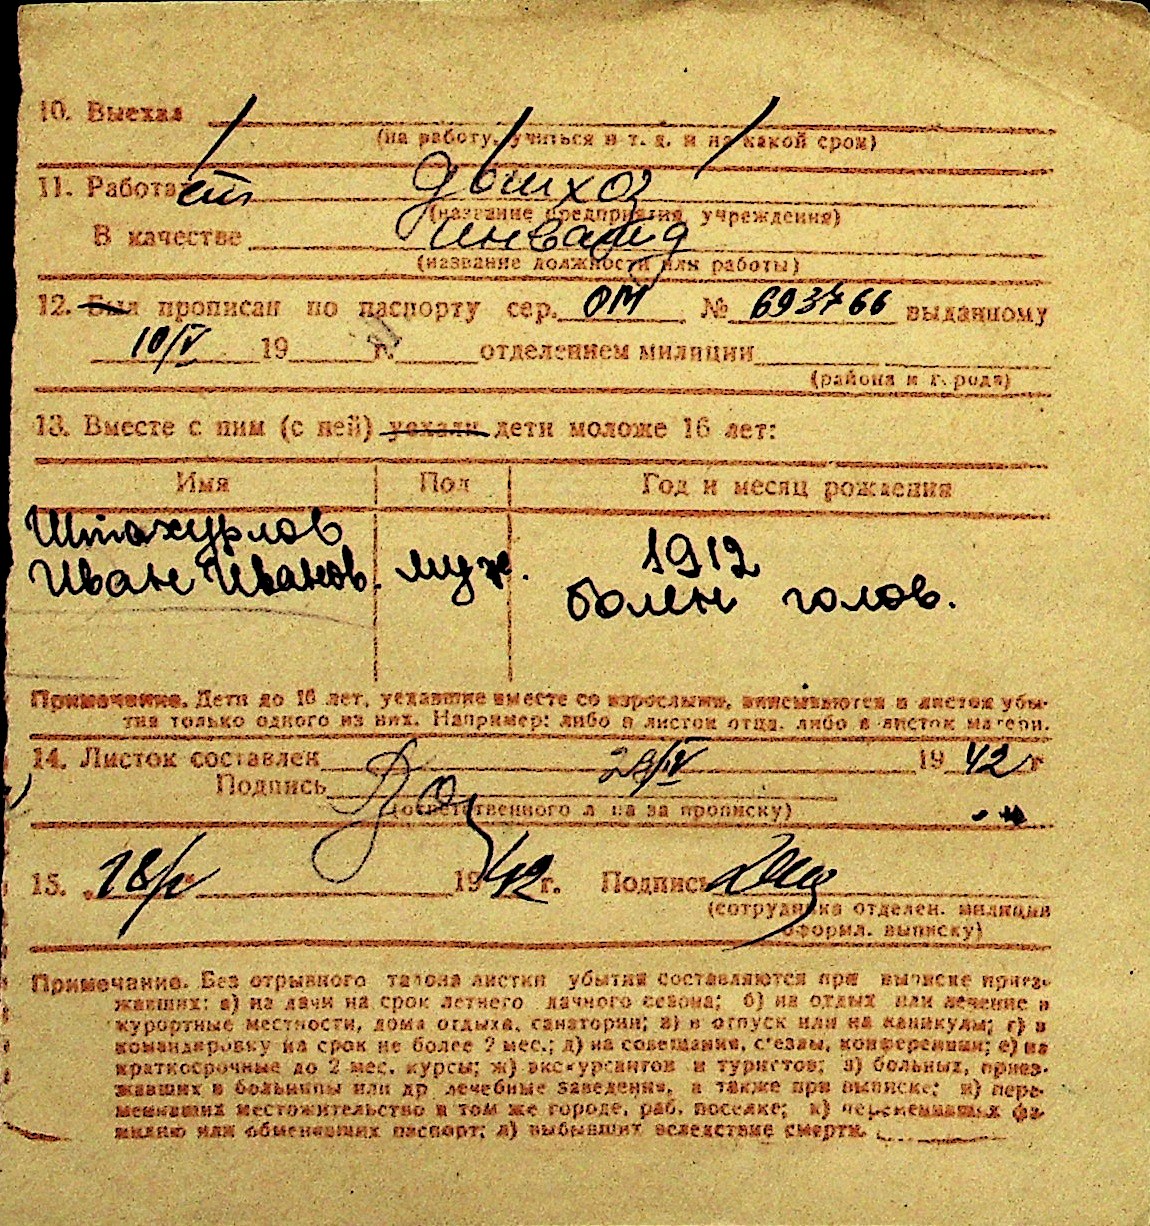 10. Выехал
(на работу, учиться и т. д. и на какой срок)
11. Работает
(название предприятия, учреждения)
В качестве инвалид
(название должности или работы)
12. Был прописан по паспорту сер. ОМ № 693766 выданному
10/IV 19 г. отделением милиции
(района и г. рода)
13. Вместе с ним (с ней) уехали дети моложе 16 лет:
Имя Пол Год и месяц рождения
Штахурлов
Иван Иванов. муж. 1912
болен голов.
Примечание. Дети до 16 лет, уехавшие вместе со взрослыми, вписываются в листок убы-
тия только одного из них. Например: либо в листок отца, либо в листок матери.
14. Листок составлен /IV 1942 г
Подпись
(ответственного л ца за прописку)
15. „18/V 1942 г. Подпись
(сотрудника отделен. милиции
оформл. выписку)
Примечание. Без отрывного талона листки убытия составляются при выписке приез-
жавших: а) на дачи на срок летнего дачного сезона; б) на отдых или лечение в
курортные местности, дома отдыха, санатории; в) в отпуск или на каникулы; г) в
командировку на срок не более 2 мес.; д) на совещания, с'езды, конференции; е) на
краткосрочные до 2 мес. курсы; ж) экскурсантов и туристов; з) больных, приез-
жавших в больницы или др лечебные заведения, а также при выписке; и) пере-
менивших местожительство в том же городе, раб. поселке; к) переменивших фа-
милию или обменявших паспорт; л) выбывших вследствие смерти.